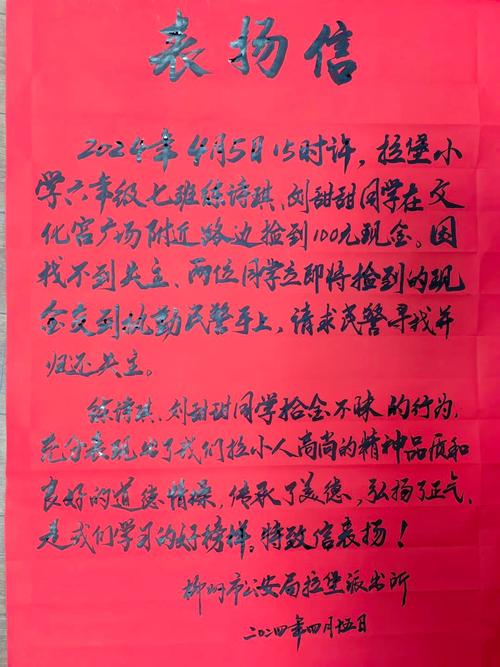 表扬信
2024年4月5日15时许，拉堡小
学六年级七班练诗琪、刘甜甜同学在文
化宫广场附近路边捡到100元现金。因
找不到失主、两位同学立即将捡到的现
金交到执勤民警手上，请求民警寻找并
归还失主。
练诗琪、刘甜甜同学拾金不昧的行为，
充分表现出了我们拉小人高尚的精神品质和
良好的道德情操，传承了美德，弘扬了正气，
是我们学习的好榜样。特致信表扬！
柳州市公安局拉堡派出所
二〇二四年四月十五日